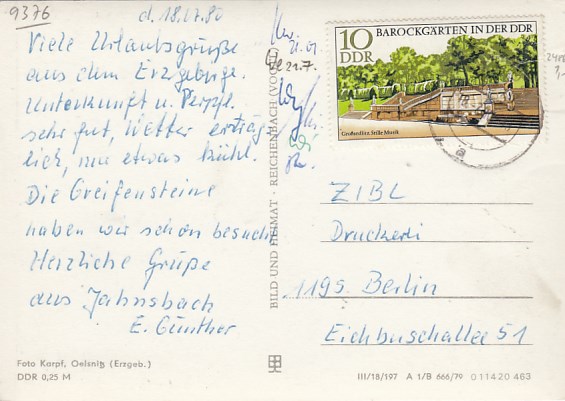 9376
d. 18.07.80
Viele Urlaubsgrüße
aus dem Erzgebirge.
Unterkunft u. Verpfl.
sehr gut, Wetter erträg-
lich, nur etwas kühl.
Die Greifensteine
haben wir schon besucht
Herzliche Grüße
aus Jahnsbach
E. Günther
Foto Karpf, Oelsnitz (Erzgeb.)
DDR 0,25 M
21.7.
BILD UND HEIMAT · REICHENBACH (VOGTL)
10
DDR
BAROCKGÄRTEN IN DER DDR
Großsedlitz, Stille Musik
ZIBL
Druckerei
1195 Berlin
Eichbuschallee 51
III/18/197 A 1/B 666/79 011420 463